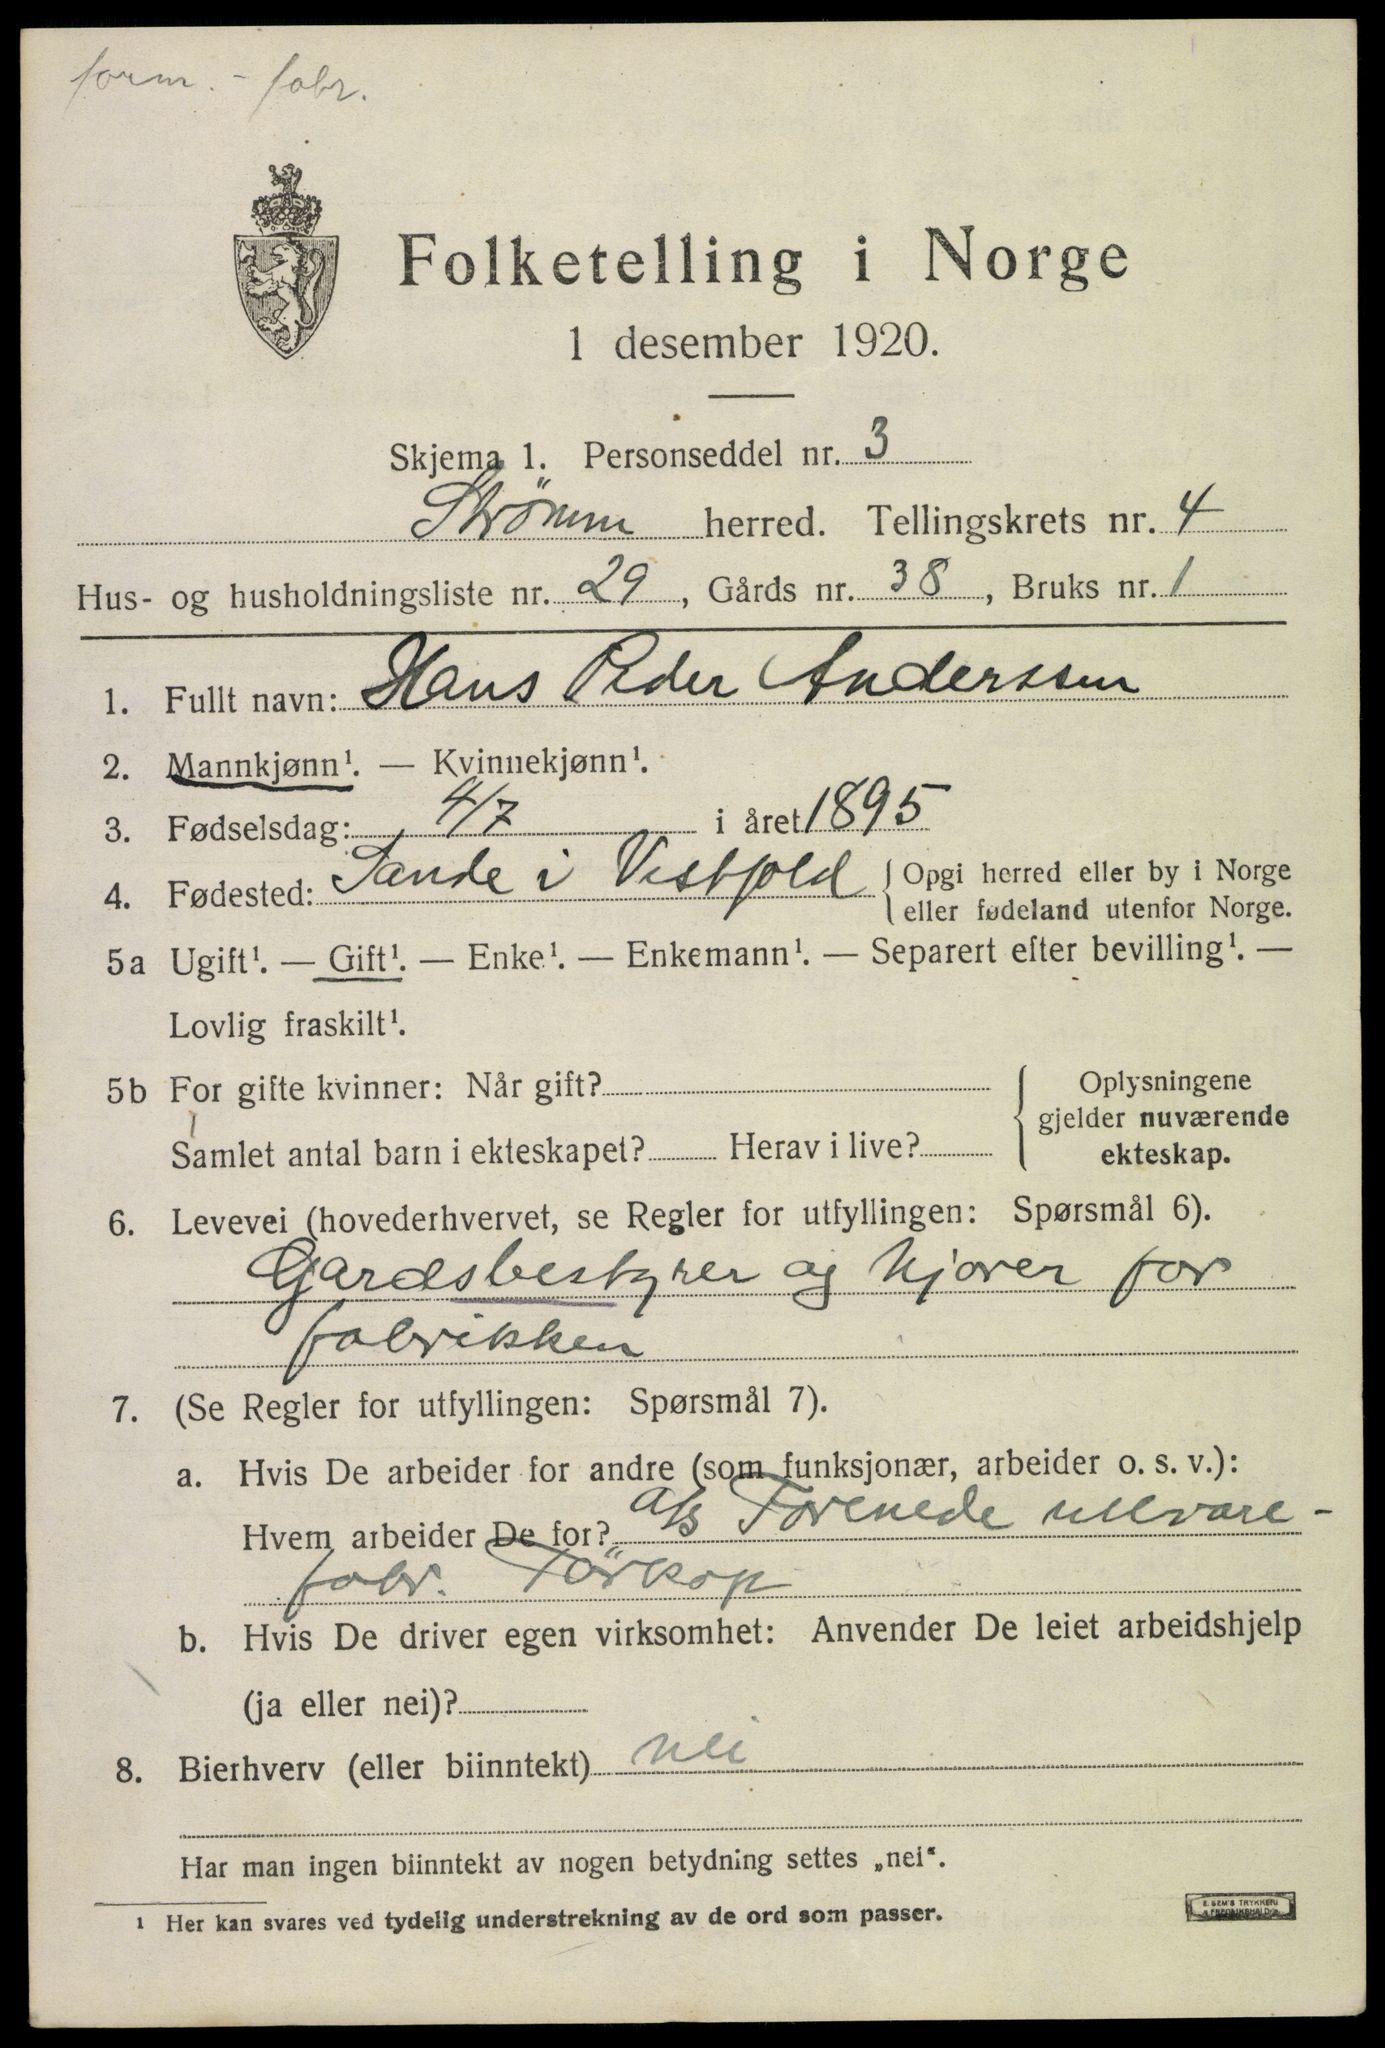 form. - fabr.
Folketelling i Norge
1 desember 1920.
Skjema 1. Personseddel nr. 3
Strømm herred. Tellingskrets nr. 4
Hus- og husholdningsliste nr. 29, Gårds nr. 38, Bruks nr. 1
1. Fullt navn: Hans Peder Anderssen
2. Mannkjønn¹. — Kvinnekjønn¹.
3. Fødselsdag: 4/7 i året 1895
4. Fødested: Sande i Vestfold { Opgi herred eller by i Norge
eller fødeland utenfor Norge.
5a Ugift¹. — Gift¹. — Enke¹. — Enkemann¹. — Separert efter bevilling¹. —
Lovlig fraskilt¹.
5b For gifte kvinner: Når gift?
Samlet antal barn i ekteskapet? Herav i live?
Oplysningene
gjelder nuværende
ekteskap.
6. Levevei (hovederhvervet, se Regler for utfyllingen: Spørsmål 6).
Gardsbestyrer og kjører for
fabrikken
7. (Se Regler for utfyllingen: Spørsmål 7).
a. Hvis De arbeider for andre (som funksjonær, arbeider o. s. v.):
Hvem arbeider De for? a/s Forenede ullvare-
fabr. Tørkop
b. Hvis De driver egen virksomhet: Anvender De leiet arbeidshjelp
(ja eller nei)?
8. Bierhverv (eller biinntekt) nei
Har man ingen biinntekt av nogen betydning settes „nei“.
¹ Her kan svares ved tydelig understrekning av de ord som passer.
E. SEM'S TRYKKERI
FREDRIKSHALD